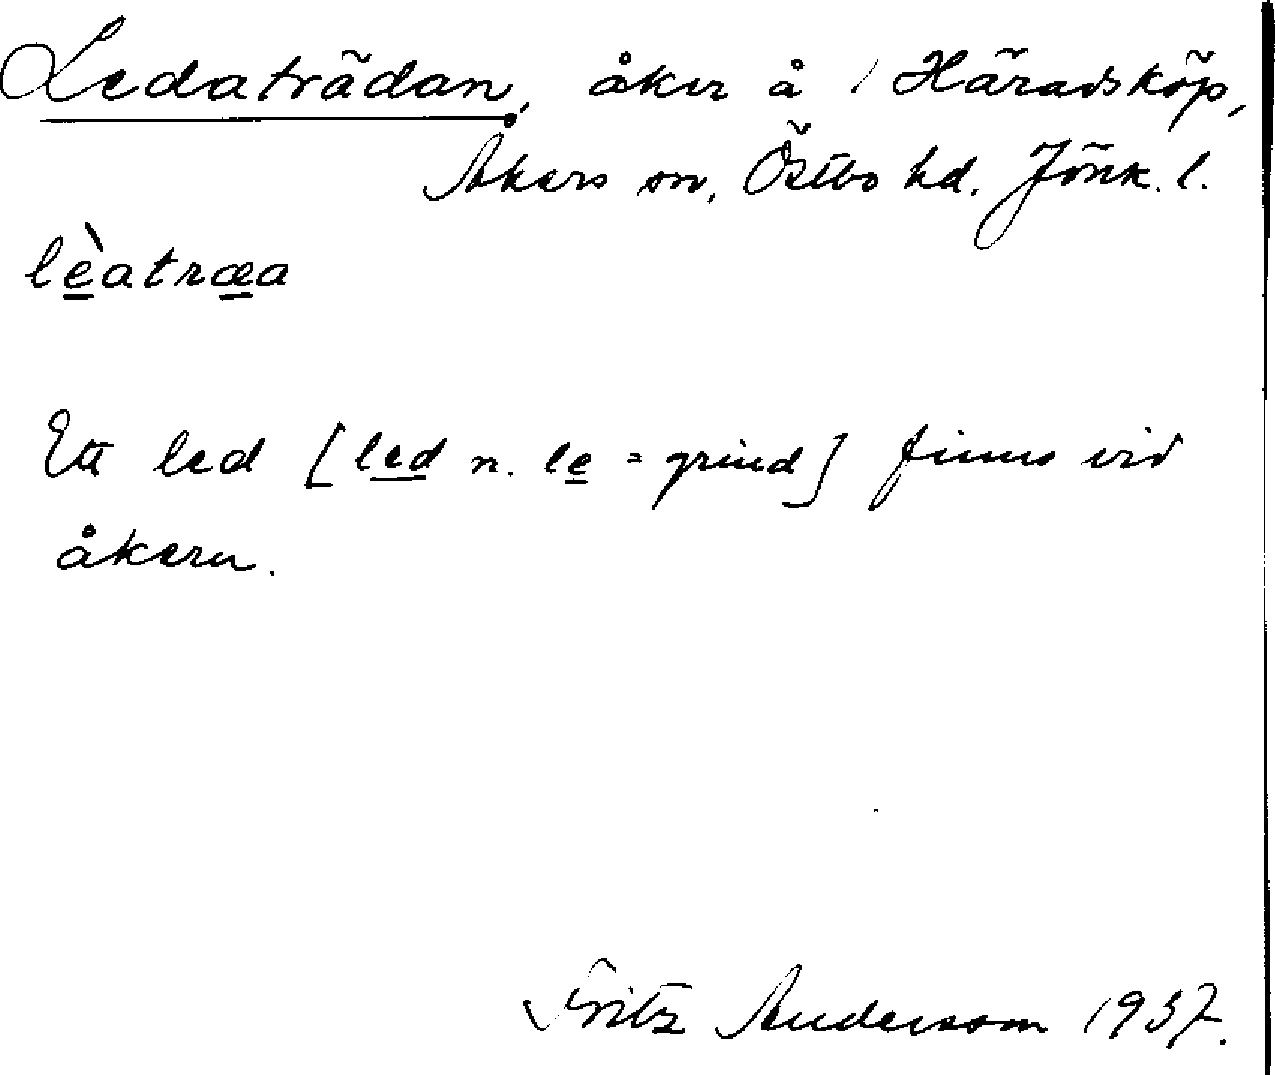 Ledaträdan, åker å 1 Häradsköp,
Åkers sn, Östbo hd. Jönk. l.
lèatræa
Ett led [led n. le = grind] finns vid
åkern.
Fritz Andersson 1937.